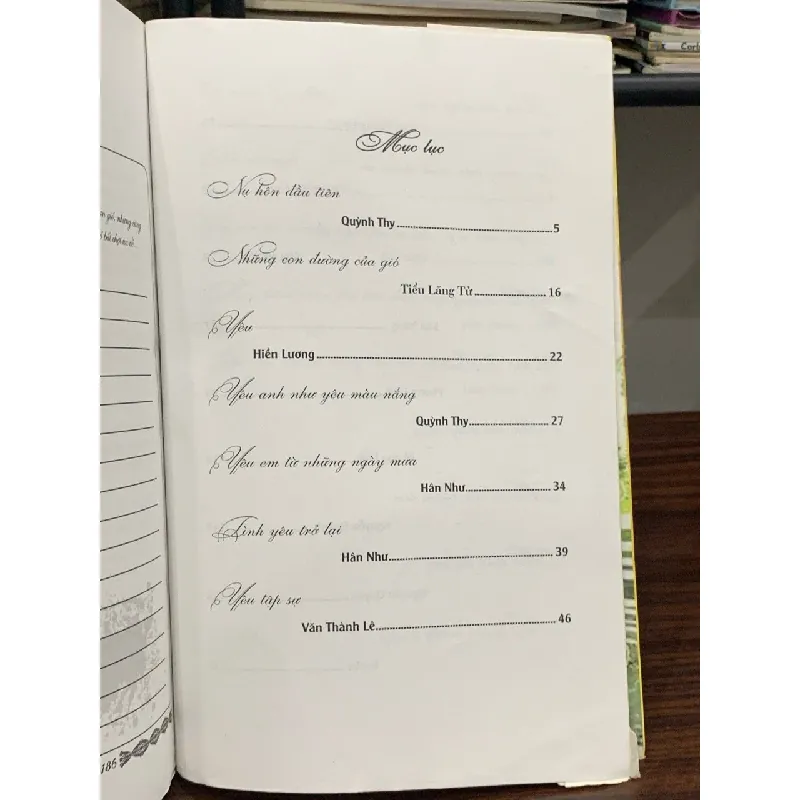 Mục lục
Nụ hôn đầu tiên
Quỳnh Thy.....5
Những con đường của gió
Tiểu Lãng Tử.....16
Yêu
Hiền Lương.....22
Yêu anh như yêu màu nắng
Quỳnh Thy.....27
Yêu em từ những ngày mưa
Hân Như.....34
Tình yêu trở lại
Hân Như.....39
Yêu tập sự
Văn Thành Lê.....46
186